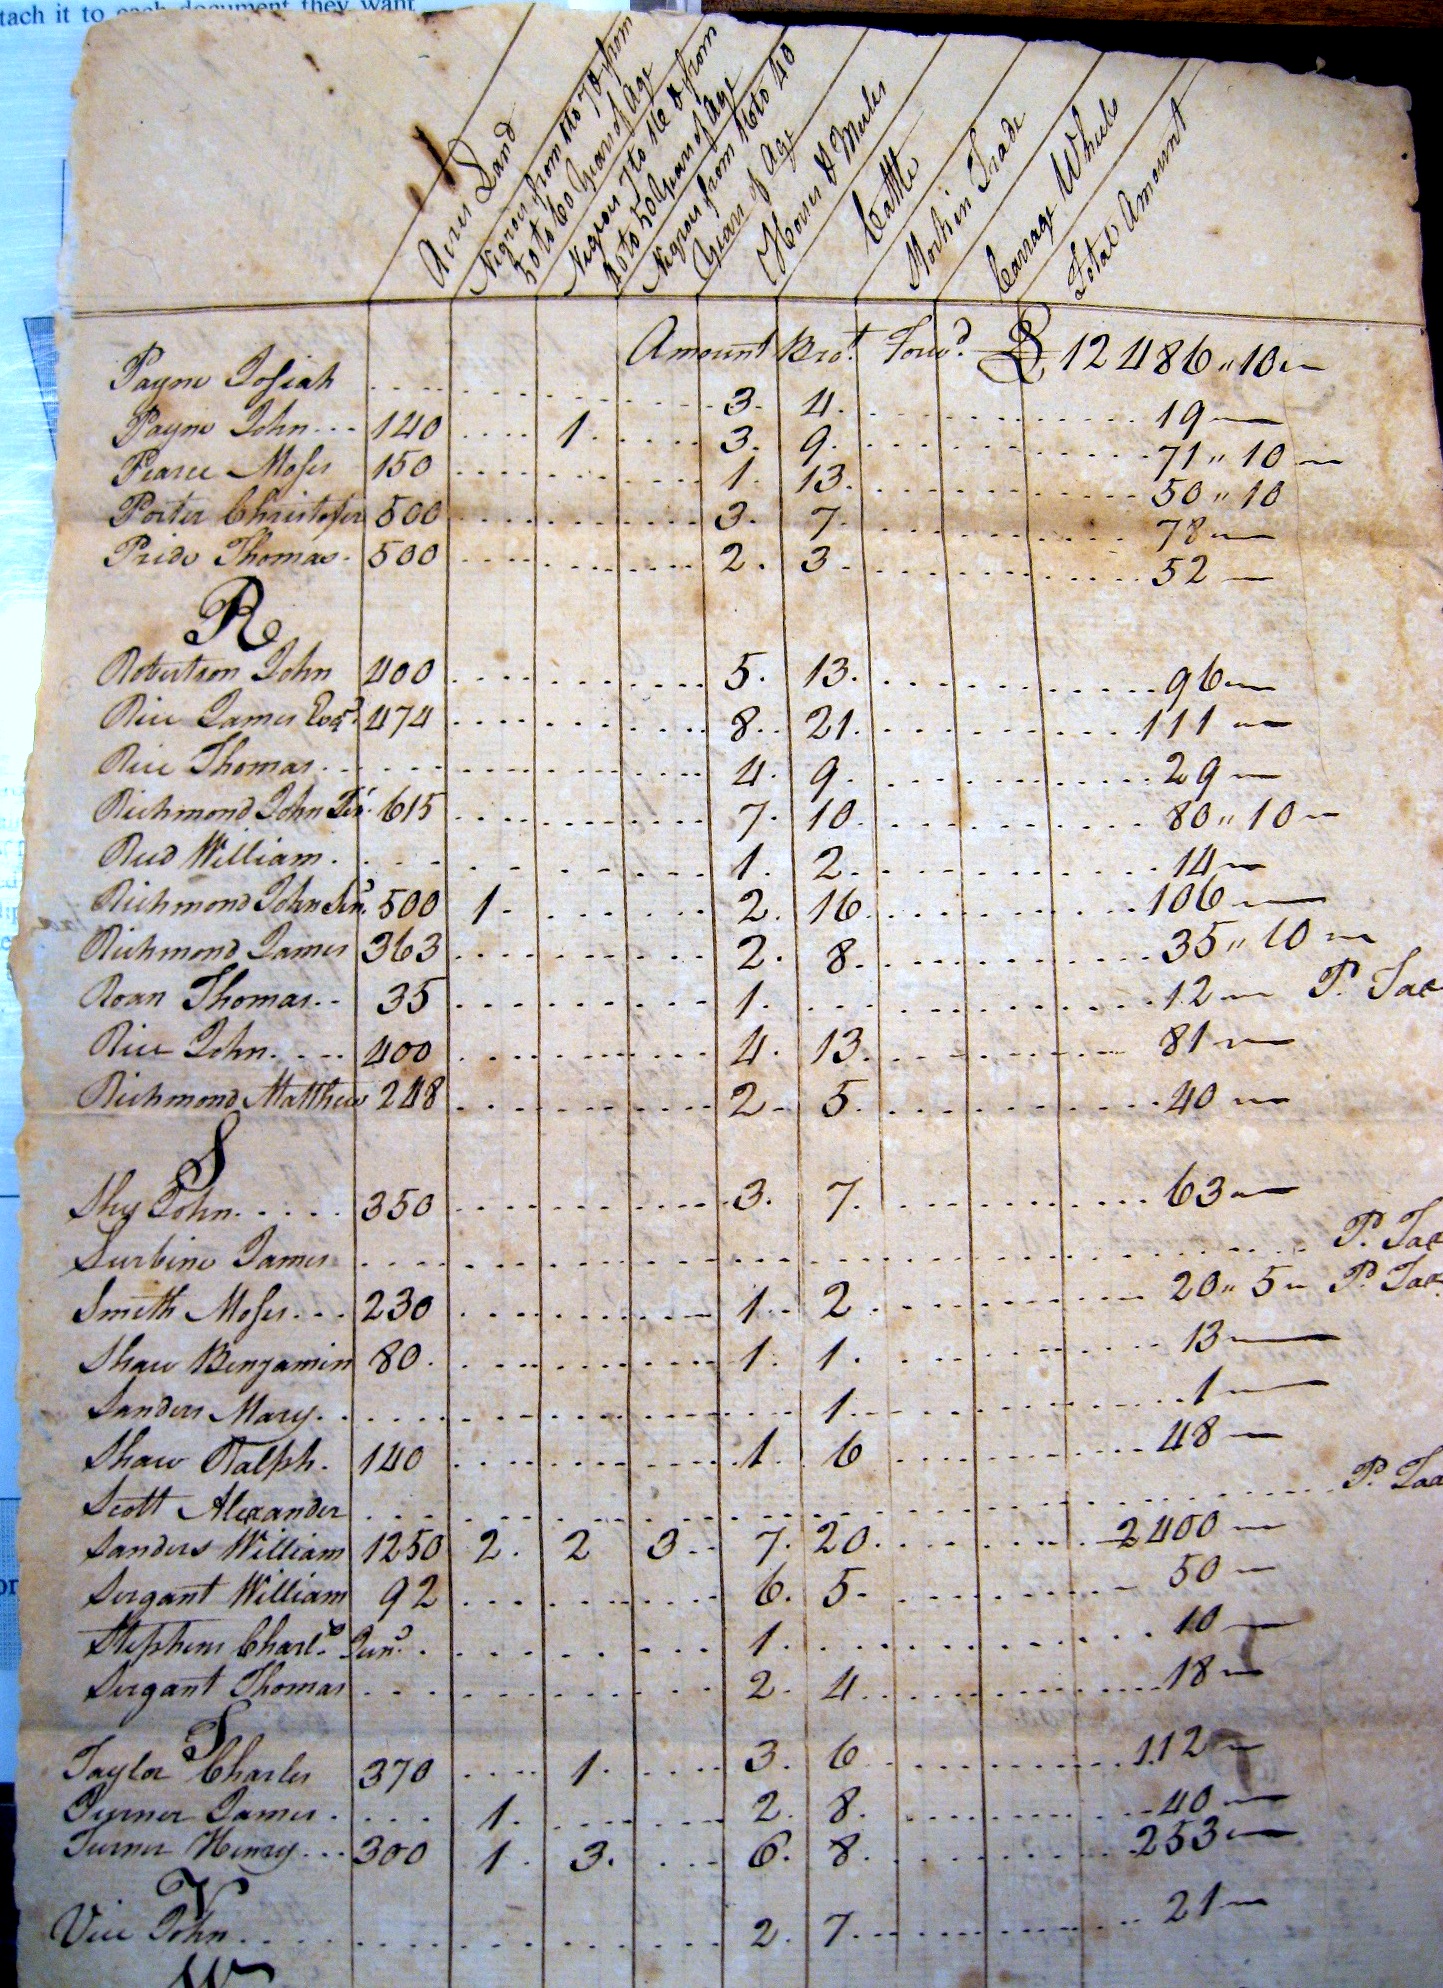 tach it to each document they want
Acres Land
Negroes from 1 to 7 & from
50 to 60 Years of Age
Negroes 7 to 16 & from
40 to 50 Years of Age
Negroes from 16 to 40
Years of Age
Horses & Mules
Cattle
Stock in Trade
Carrage Wheels
Total Amount
Amount Brot. Forwd. £ 12486 " 10
Payne Josiah 3. 4. 19
Payne John 140 1. 3. 9. 71 " 10
Pearce Moses 150 1. 13. 50 " 10
Porter Christofer 500 3. 7. 78
Pride Thomas 500 2. 3. 52
R
Robertson John 400 5. 13. 96
Rice James Esqr. 474 8. 21. 111
Rice Thomas 4. 9. 29
Richmond John 615 7. 10. 80 " 10
Reed William 1. 2. 14
Richmond John 500 1. 2. 16 106
Richmond James 363 2. 8. 35 " 10
Roan Thomas 35 1. 12 P. Tax
Rice John 400 4. 13. 81
Richmond Matthew 248 2. 5. 40
S
Shy John 350 3. 7. 63
James P. Tax
Smith Moses 230 1. 2 20 " 5 P. Tax
Shaw Benjamin 80 1. 1. 13
Sanders Mary 1. 1
Shaw Ralph 140 1. 6 48
Scott Alexander P. Tax
Sanders William 1250 2. 2 3 7. 20. 2400
Sergant William 92 6. 5. 50
Stephens Charls. Junr. 1. 10
Sergant Thomas 2. 4. 18
T
Taylor Charles 370 1. 3. 6 112
Turner James 1. 2. 8. 40
Turner Henry 300 1. 3. 6. 8. 253
V
Vice John 2. 7. 21
W